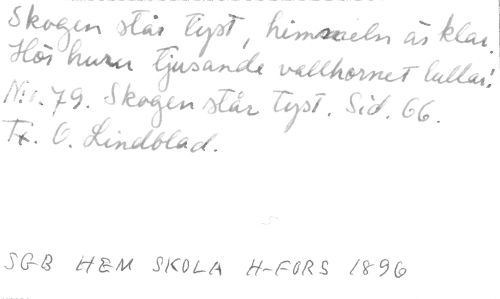 Skogen står tyst, himmeln är klar.
Hör huru tjusande vallhornet lullar!
N:r. 79. Skogen står tyst. Sid. 66.
Tx. O. Lindblad.
SGB HEM SKOLA H-FORS 1896